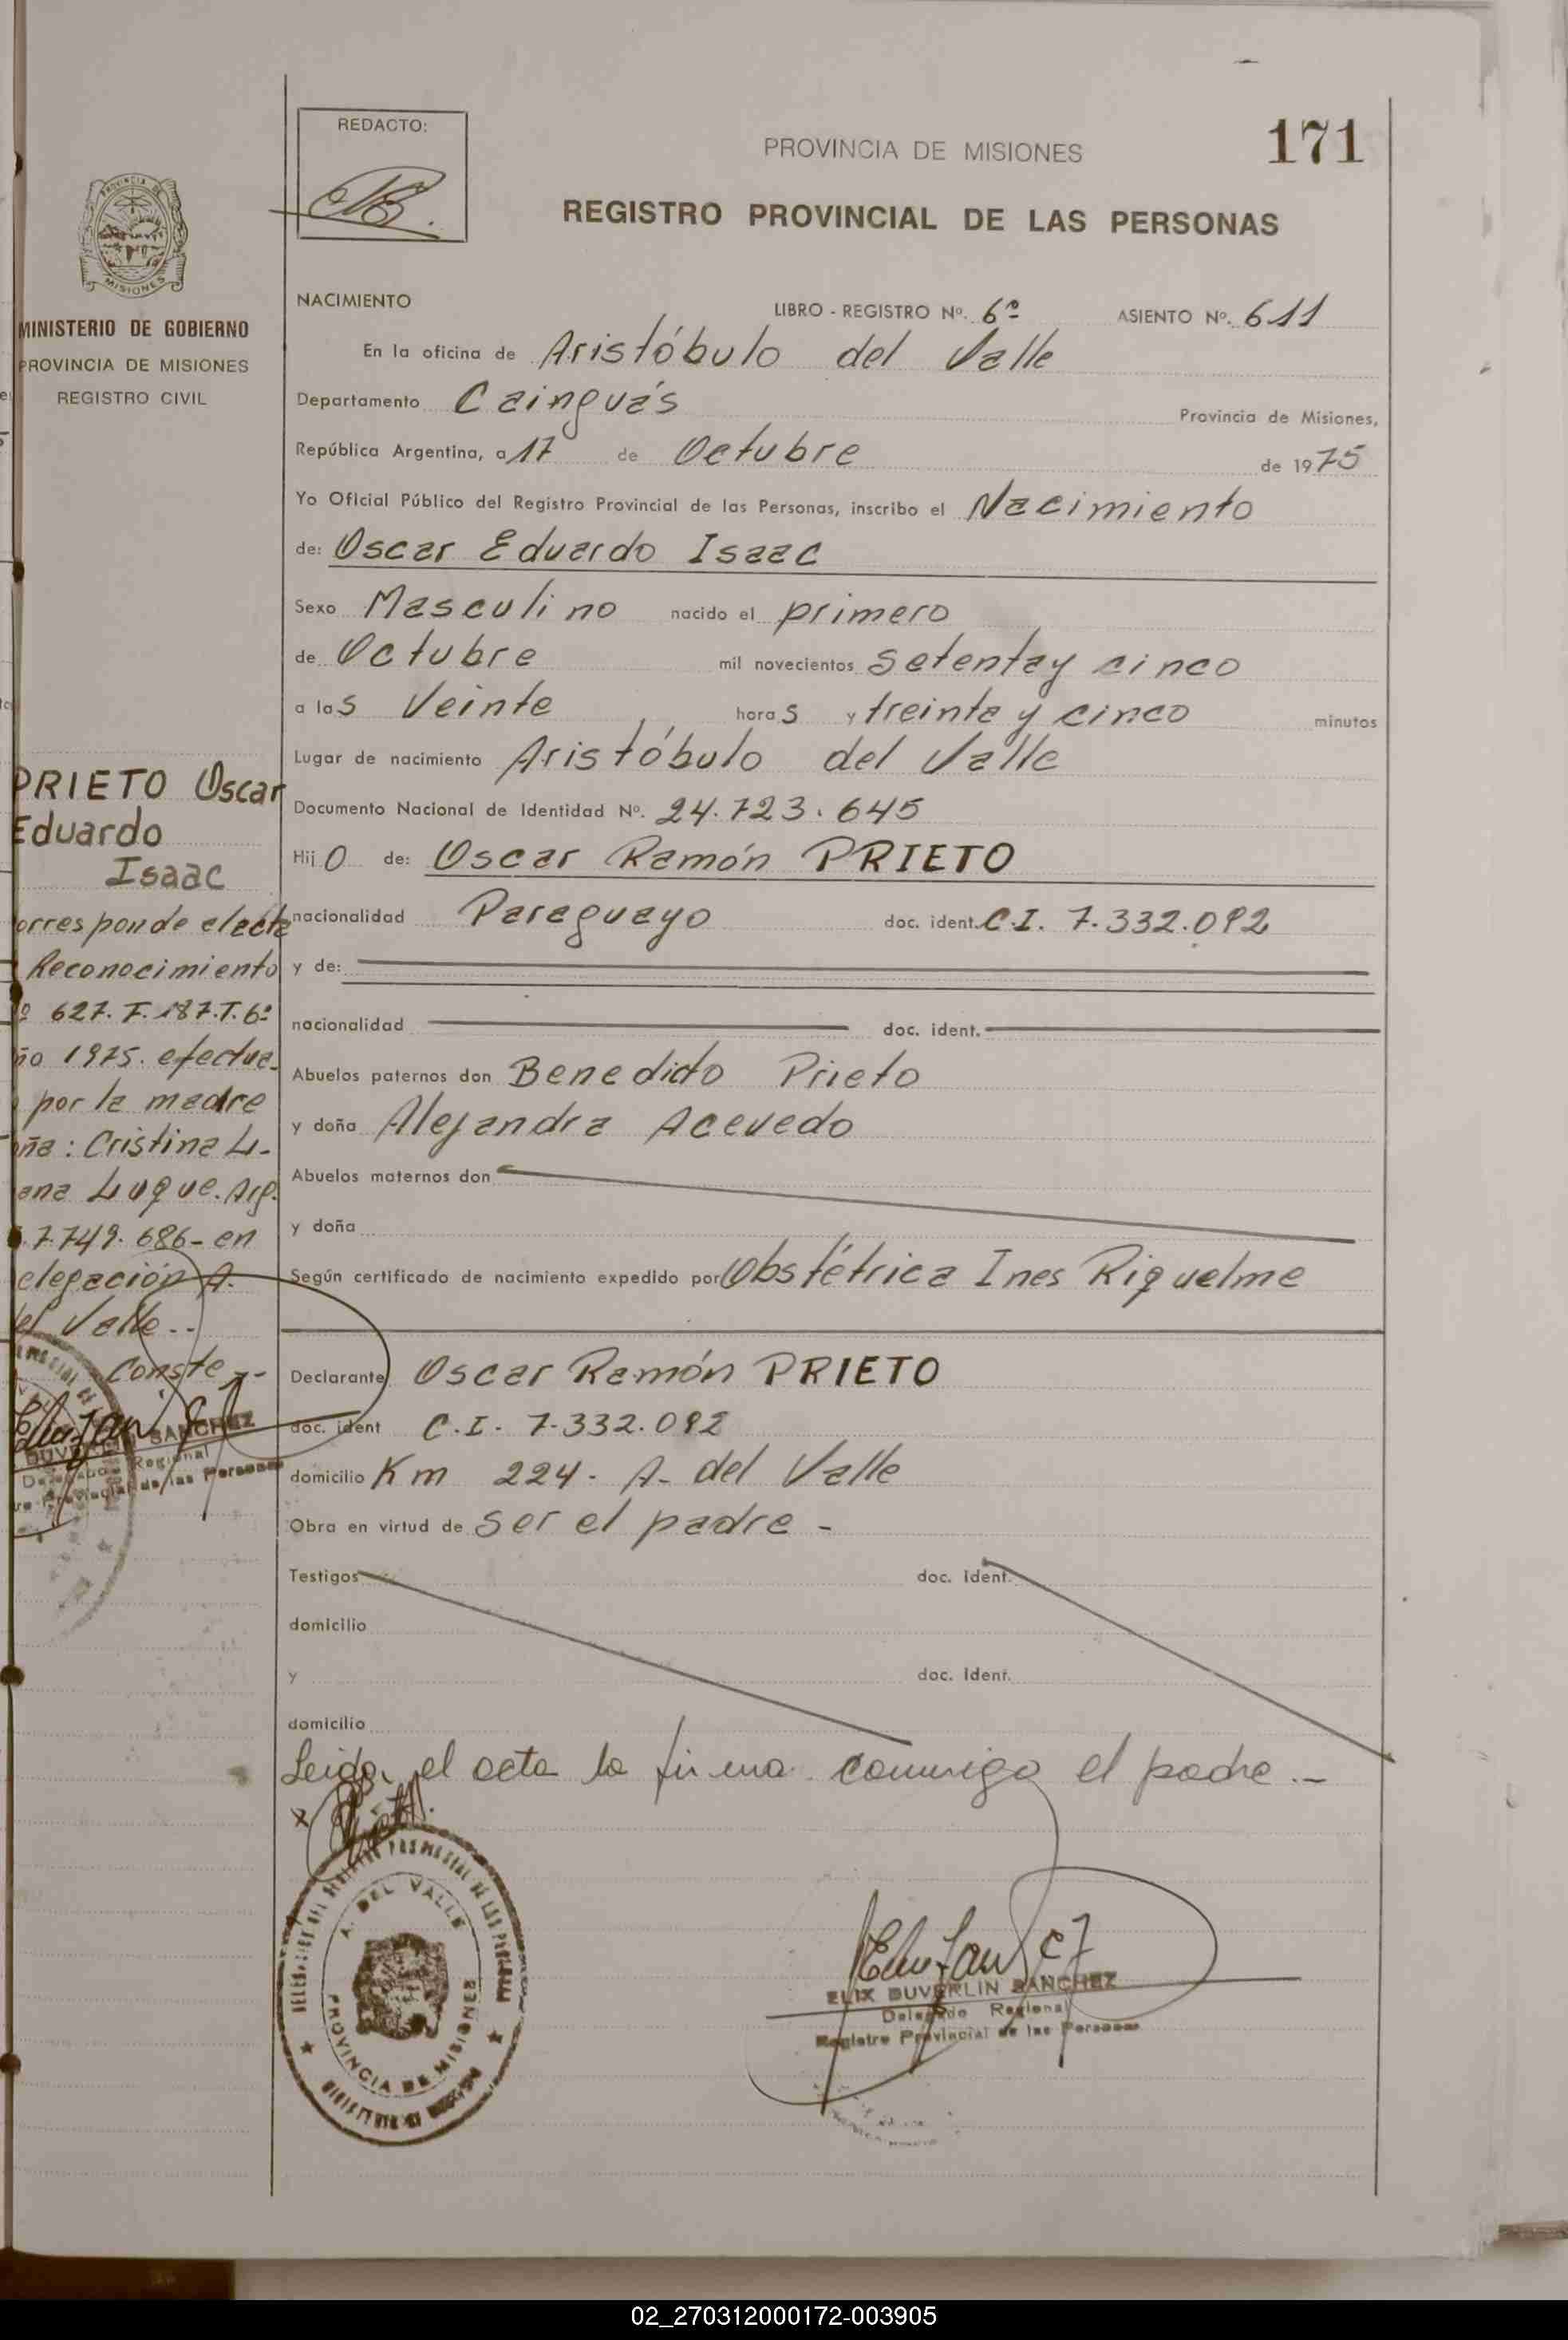 171
REDACTO:
PROVINCIA DE MISIONES
REGISTRO PROVINCIAL DE LAS PERSONAS
PROVINCIA DE
MISIONES
MINISTERIO DE GOBIERNO
PROVINCIA DE MISIONES
REGISTRO CIVIL
PRIETO Oscar
Eduardo
Isaac
orresponde el acta
Reconocimiento
627. F. 187. T. 6º
ño 1975. efectua-
por la madre
ña: Cristina Li-
ana Luque. Arg.
7.749.686- en
elegación A.
el Valle..
Conste.--
DUVERLIN SANCHEZ
Delegado Regional
Provincial de las Personas
NACIMIENTO LIBRO - REGISTRO Nº. 6º ASIENTO Nº. 611
En la oficina de Aristóbulo del Valle
Departamento Cainguás Provincia de Misiones,
República Argentina, a 17 de Octubre de 1975
Yo Oficial Público del Registro Provincial de las Personas, inscribo el Nacimiento
de: Oscar Eduardo Isaac
Sexo Masculino nacido el primero
de Octubre mil novecientos setenta y cinco
a las Veinte horas y treinta y cinco minutos
Lugar de nacimiento Aristóbulo del Valle
Documento Nacional de Identidad Nº. 24.723.645
Hijo de: Oscar Ramón PRIETO
nacionalidad Paraguayo doc. ident. C.I. 7.332.092
y de:
nacionalidad doc. ident.
Abuelos paternos don Benedicto Prieto
y doña Alejandra Acevedo
Abuelos maternos don
y doña
Según certificado de nacimiento expedido por Obstétrica Ines Riquelme
Declarante Oscar Ramón PRIETO
doc. ident C.I. 7.332.092
domicilio Km 224. A. del Valle
Obra en virtud de ser el padre -
Testigos doc. ident.
domicilio
y doc. Ident.
domicilio
Leida el acta la firma conmigo el padre.-
A. DEL VALLE
PROVINCIA DE MISIONES
ELIX DUVERLIN SANCHEZ
Delegado Regional
Registro Provincial de las Personas
02_270312000172-003905